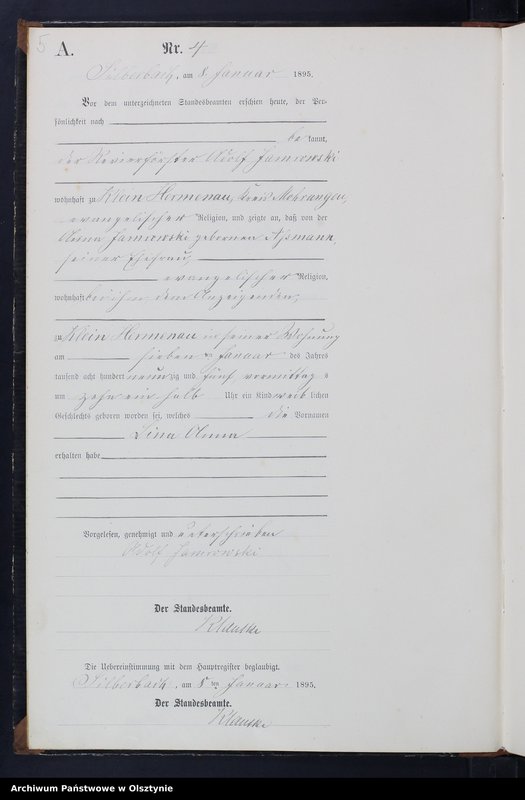 5
A. Nr. 4
Silberbach, am 8. Januar 1895.
Vor dem unterzeichneten Standesbeamten erschien heute, der Per-
sönlichkeit nach
be kannt,
der Revierförster Adolf Jamrowski
wohnhaft zu Klein Hermenau, Kreis Mohrungen,
evangelischer Religion, und zeigte an, daß von der
Anna Jamrowski geborenen Aßmann,
seiner Ehefrau,
evangelischer Religion,
wohnhaft bei ihm dem Anzeigenden,
zu Klein Hermenau in seiner Wohnung
am sieben ten Januar des Jahres
tausend acht hundert neun zig und fünf vormittag s
um zehn ein halb Uhr ein Kind weib lichen
Geschlechts geboren worden sei, welches die Vornamen
Lina Anna
erhalten habe
Vorgelesen, genehmigt und unterschrieben
Adolf Jamrowski
Der Standesbeamte.
Vorgelesen
Die Uebereinstimmung mit dem Hauptregister beglaubigt.
Silberbach, am 8 ten Januar 1895.
Der Standesbeamte.
Archiwum Państwowe w Olsztynie